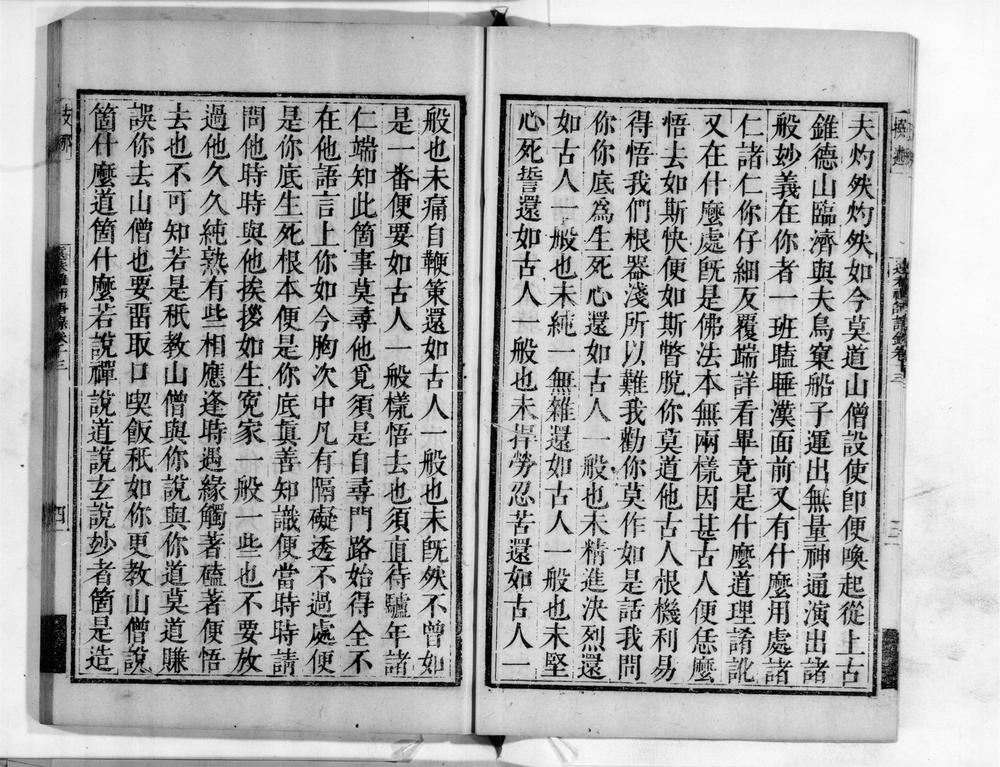 夫灼然灼然如今莫道山僧設使卽便喚起從上古
錐德山臨濟與夫鳥窠船子運出無量神通演出諸
般妙義在你者一班瞌睡漢面前又有什麼用處諸
仁諸仁你仔細反覆端詳看畢竟是什麼道理誵訛
又在什麼處旣是佛法本無兩樣因甚古人便恁麼
悟去如斯快便如斯瞥脫你莫道他古人根機利易
得悟我們根器淺所以難我勸你莫作如是話我問
你你底爲生死心還如古人一般也未精進決烈還
如古人一般也未純一無雜還如古人一般也未堅
心死誓還如古人一般也未捍勞忍苦還如古人一
般也未痛自鞭策還如古人一般也未旣然不曾如
是一番便要如古人一般樣悟去也須直待驢年諸
仁端知此箇事莫尋他覓須是自尋門路始得全不
在他語言上你如今胸次中凡有隔礙透不過處便
是你底生死根本便是你底眞善知識便當時時請
問他時時與他挨拶如生冤家一般一些也不要放
過他久久純熟有些相應逢時遇緣觸著磕著便悟
去也不可知若是秖教山僧與你說與你道莫道賺
誤你去山僧也要畱取口喫飯秖如你更教山僧說
箇什麼道箇什麼若說禪說道說玄說妙者箇是造